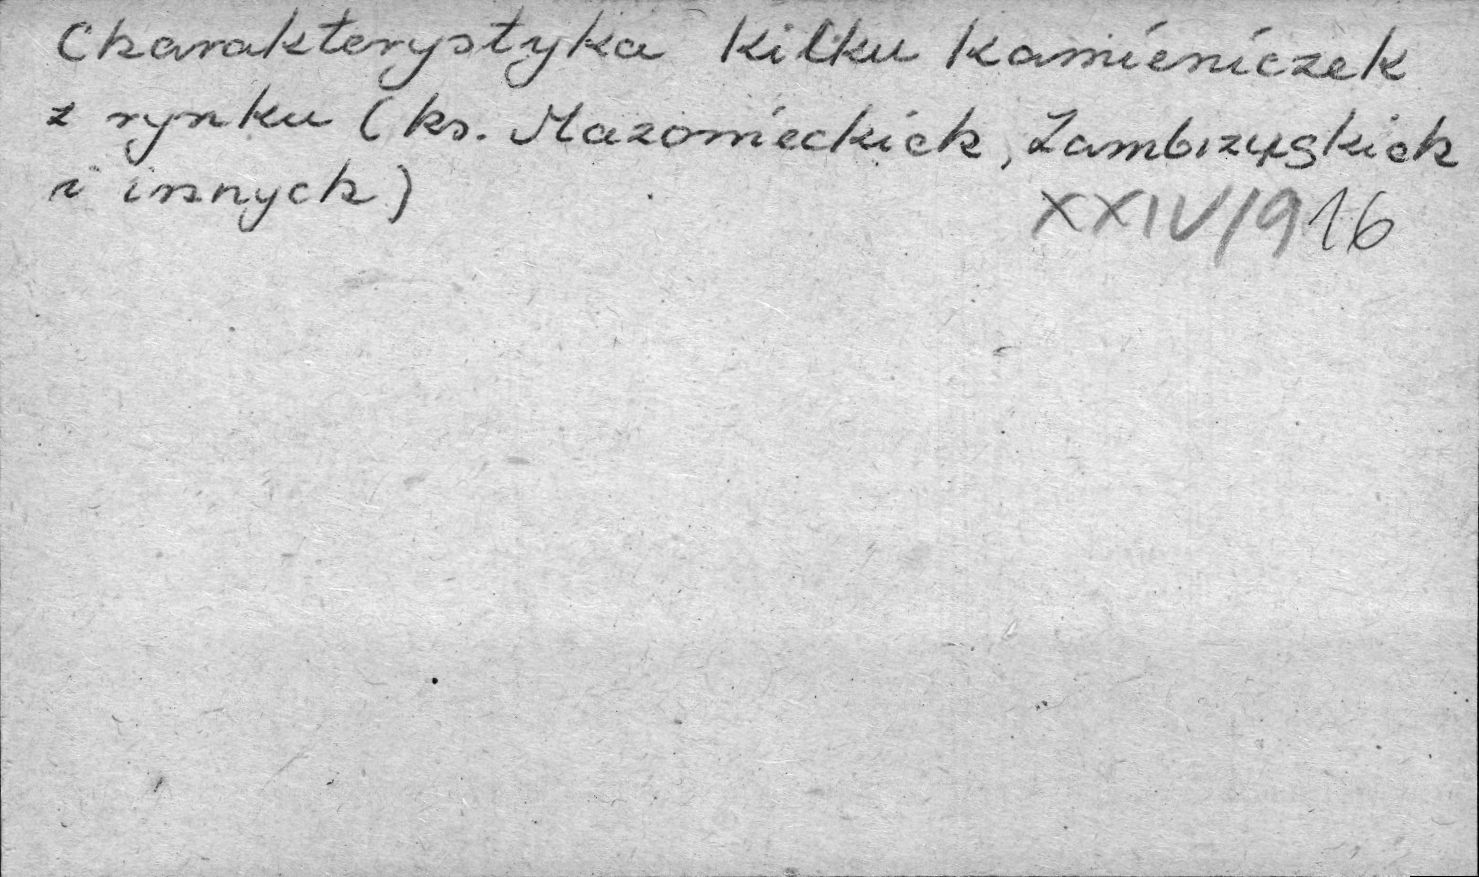 Charakterystyka kilku kamieniczek
z rynku (ks. Mazowieckich, Zambrzyskich
i innych)
XXIV/916